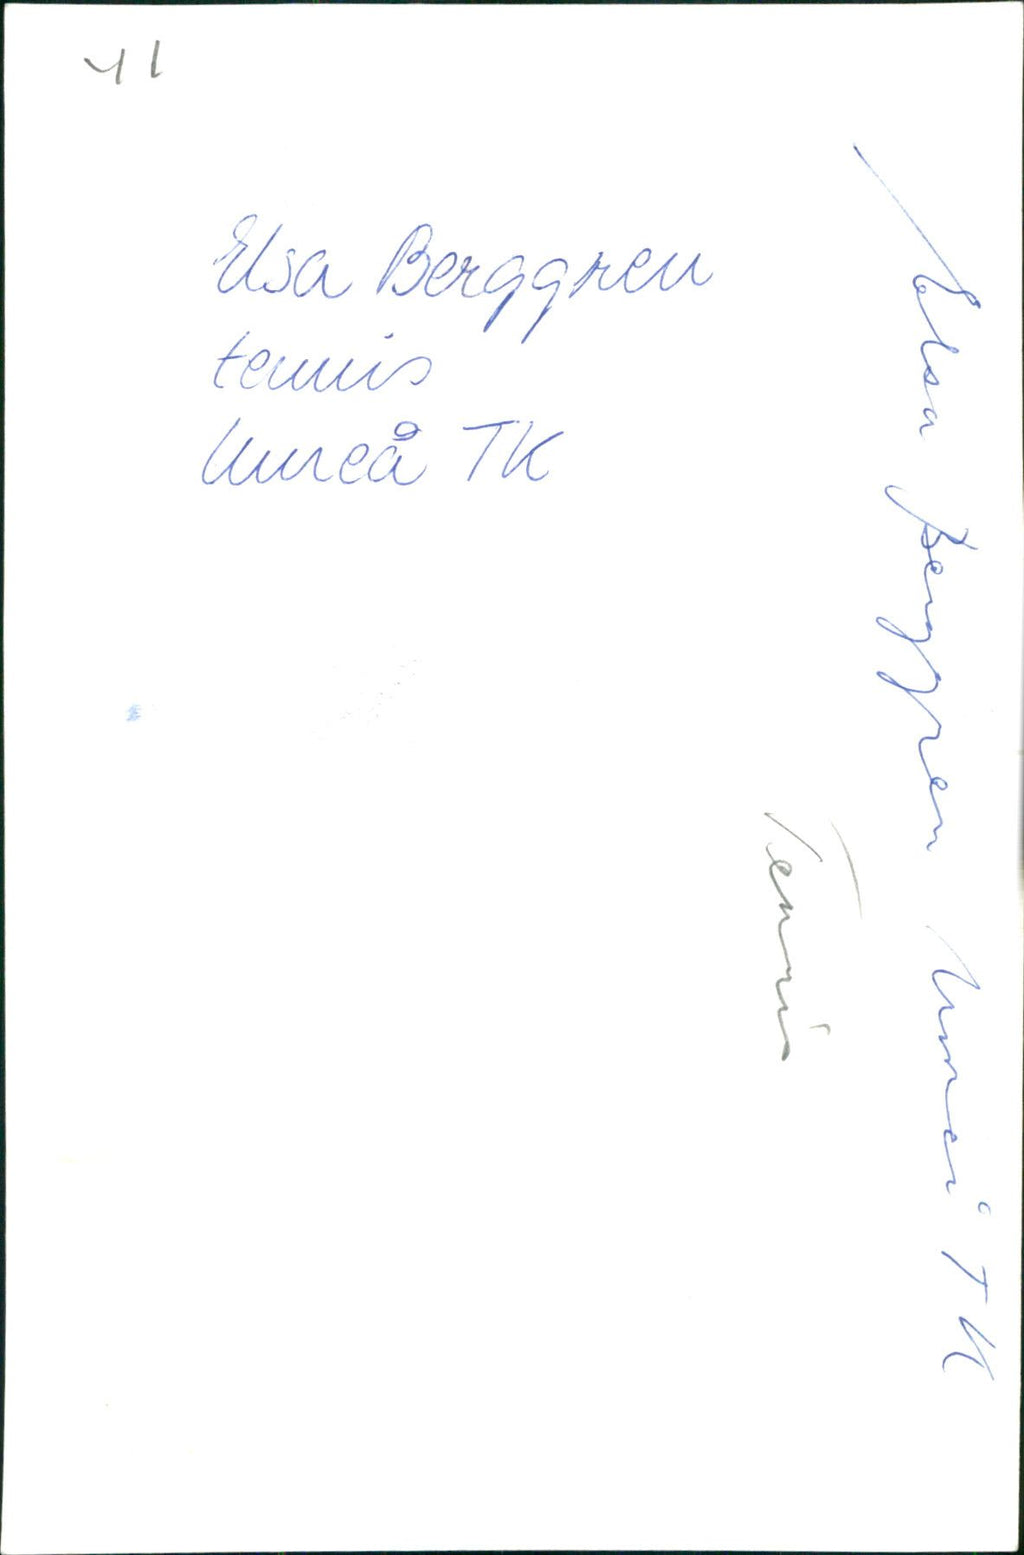 41
Elsa Berggren
tennis
Umeå TK
Elsa Berggren Umeå TK
Tennis